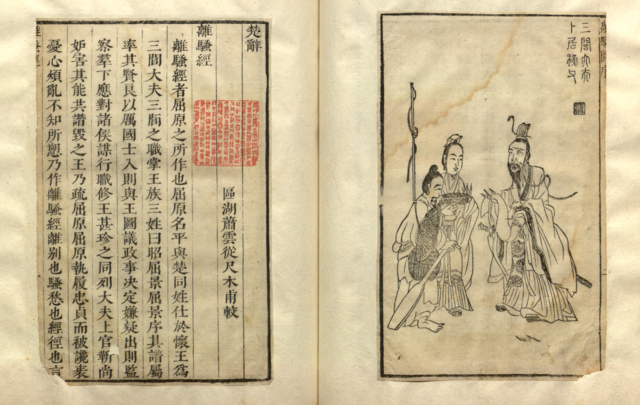 三閭大夫
卜居漁父
楚辭
區湖蕭雲從尺木甫較
離騷經
離騷經者屈原之所作也屈原名平與楚同姓仕於懷王為
三閭大夫三閭之職掌王族三姓曰昭屈景屈原序其譜屬
率其賢良以厲國士入則與王圖議政事決定嫌疑出則監
察羣下應對諸侯謀行職修王甚珍之同列大夫上官靳尚
妒害其能共譖毀之王乃疏屈原屈原執履忠貞而被讒衺
憂心煩亂不知所愬乃作離騷經離別也騷愁也經徑也言